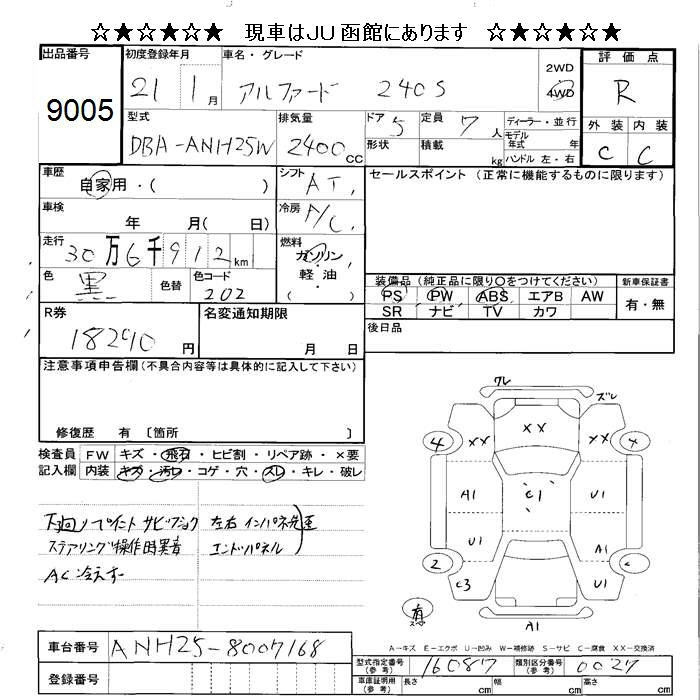 ☆★☆★☆★ 現車はJU函館にあります ☆★☆★☆★
出品番号
9005
初度登録年月
21 1月
車名・グレード
アルファード 240S
2WD
4WD
評価点
R
外装 内装
C C
型式
DBA-ANH25W
排気量
2400cc
ドア 5
形状
定員 7人
積載 kg
ディーラー・並行
モデル
年式 年
ハンドル 左・右
車歴
自家用・( )
シフト AT
車検
年 月( 日)
冷房 A/C
走行
30万6千912km
燃料
ガソリン
・
軽油
( )
色
黒
色替
色コード
202
セールスポイント(正常に機能するものに限ります)
装備品(純正品に限り○をつけてください)
PS PW ABS エアB AW
SR ナビ TV カワ
新車保証書
有・無
R券
18290円
名変通知期限
月 日
後日品
注意事項申告欄(不具合内容等は具体的に記入して下さい)
修復歴 有 〔箇所 〕
検査員
記入欄
FW キズ・飛石・ヒビ割・リペア跡・×要
内装 キズ・汚レ・コゲ・穴・スレ・キレ・破レ
下廻りペイント サビフショク
ステアリング操作時異音
AC冷えず
左右インパネ先歪
エンドパネル
ワレ
ズレ
XX
XX
XX
4
A1
C1
U1
U1
A1
2
C3
U1
有
A1
A-キズ E-エクボ U-凹み W-補修跡 S-サビ C-腐食 XX-交換済
車台番号
ANH25-8007168
登録番号
型式指定番号
(参考)
16087
類別区分番号
(参考)
0027
車庫証明用
(参考)
長さ cm
幅 cm
高さ cm